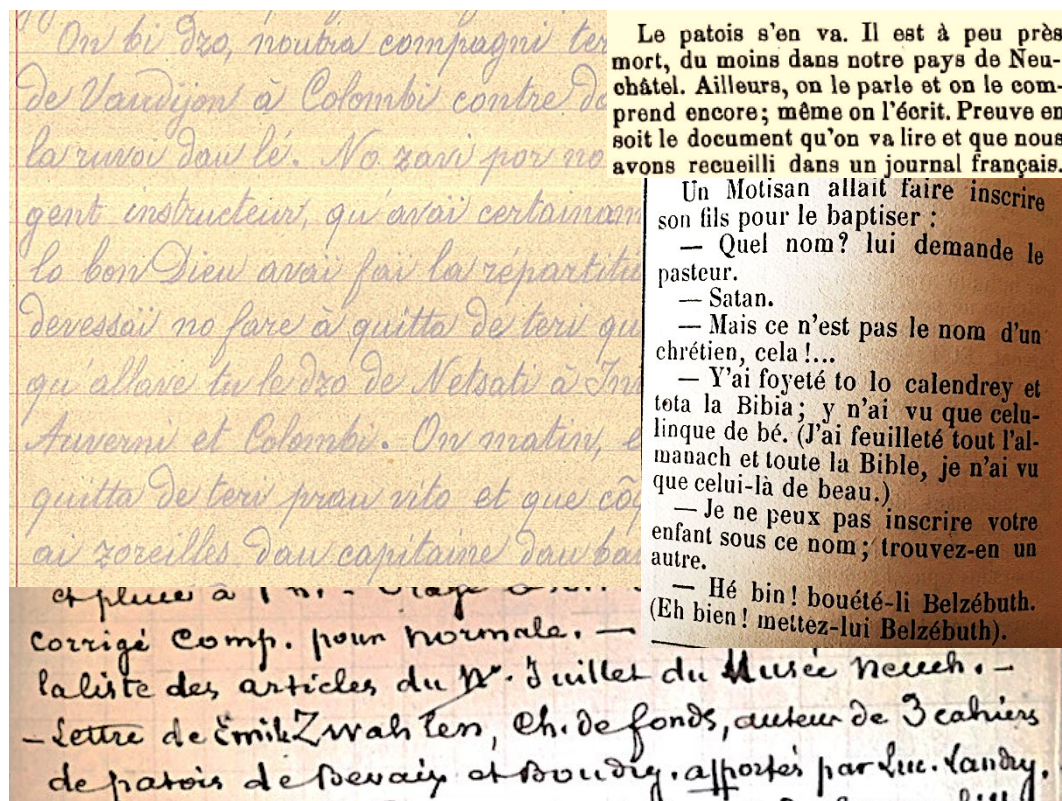 On bi dzo, noutra compagni ter
de Vaudijon à Colombi contre do
la ruvoi dau lé. No zavi por no
gent instructeur, qu'avai certainam
lo bon Dieu avai fai la répartiti
devessai no fare à quitta de teri qu
qu'allave tu le dzo de Netsati à
Auverni et Colombi. On matin, e
quitta de teri prau vito et que côq
ai zoreilles dau capitaine dau ba
Le patois s'en va. Il est à peu près
mort, du moins dans notre pays de Neu-
châtel. Ailleurs, on le parle et on le com-
prend encore; même on l'écrit. Preuve en
soit le document qu'on va lire et que nous
avons recueilli dans un journal français.
Un Motisan allait faire inscrire
son fils pour le baptiser :
— Quel nom? lui demande le
pasteur.
— Satan.
— Mais ce n'est pas le nom d'un
chrétien, cela!...
— Y'ai foyeté to lo calendrey et
tota la Bibia; y n'ai vu que celu-
linque de bé. (J'ai feuilleté tout l'al-
manach et toute la Bible, je n'ai vu
que celui-là de beau.)
— Je ne peux pas inscrire votre
enfant sous ce nom; trouvez-en un
autre.
— Hé bin! bouété-li Belzébuth.
(Eh bien! mettez-lui Belzébuth).
corrigé Comp. pour normale. —
la liste des articles du Nº. Juillet du Musée neuch. —
— Lettre de Emile Zwahlen, Ch. de fonds, auteur de 3 cahiers
de patois de Bevaix et Boudry. apportés par Luc. Landry.